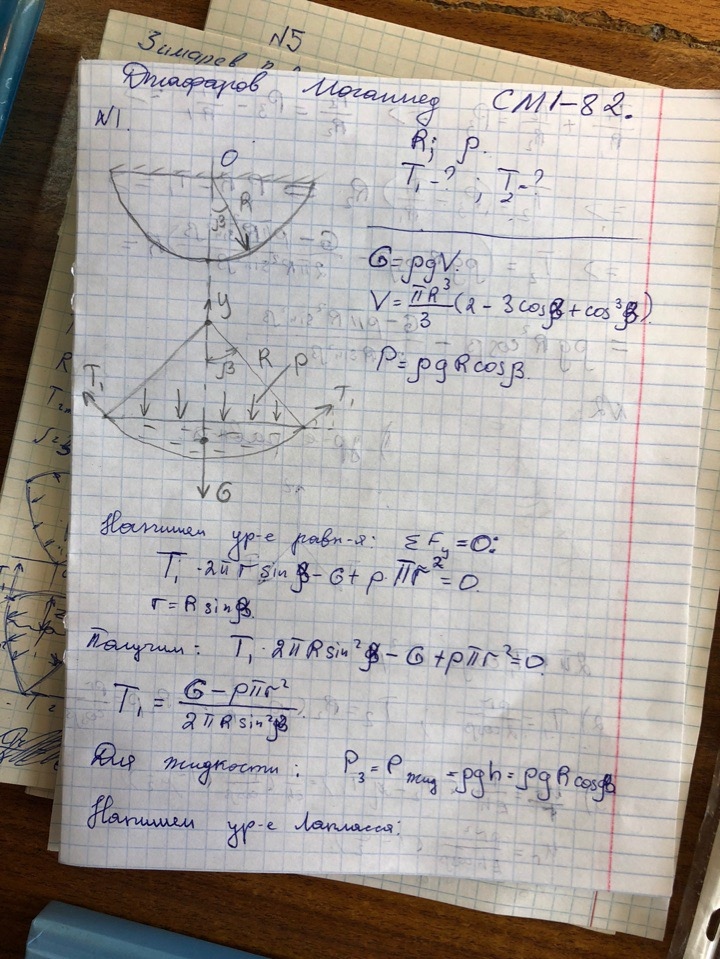 №5
Зимарев
Джафаров Могаммед СМ1-82.
№1.
R; ρ.
T₁-? ; T₂-?
O
R
β
G=ρgV.
V = πR³/3 (2 - 3cosβ + cos³β).
P = ρgRcosβ.
y
β
R
P
T₁
T₁
G
Напишем ур-е равн-я: ΣFy = 0:
T₁ · 2πr sinβ - G + p·πr² = 0.
r = R sinβ.
Получим: T₁ · 2πR sin²β - G + pπr² = 0.
T₁ = (G - pπr²)/(2πR sin²β).
Для жидкости: P₃ = Pжид = ρgh = ρgRcosβ
Напишем ур-е Лапласса: